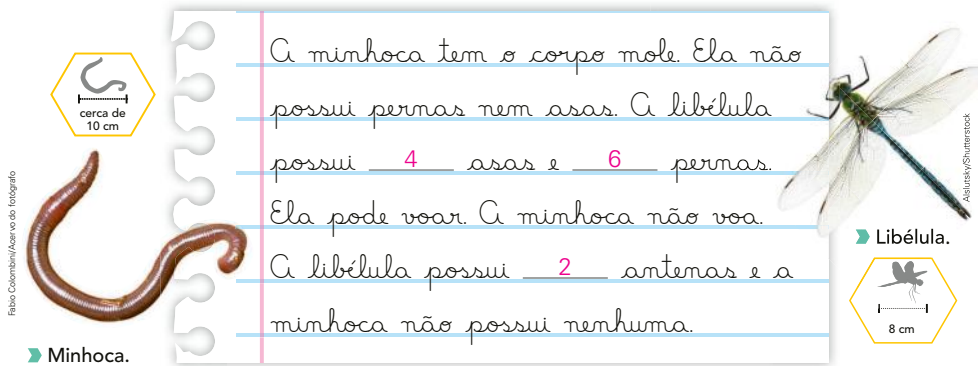 cerca de
10 cm
Fabio Colombini/Acervo do fotógrafo
Minhoca.
A minhoca tem o corpo mole. Ela não
possui pernas nem asas. A libélula
possui 4 asas e 6 pernas.
Ela pode voar. A minhoca não voa.
A libélula possui 2 antenas e a
minhoca não possui nenhuma.
Alslutsky/Shutterstock
Libélula.
8 cm